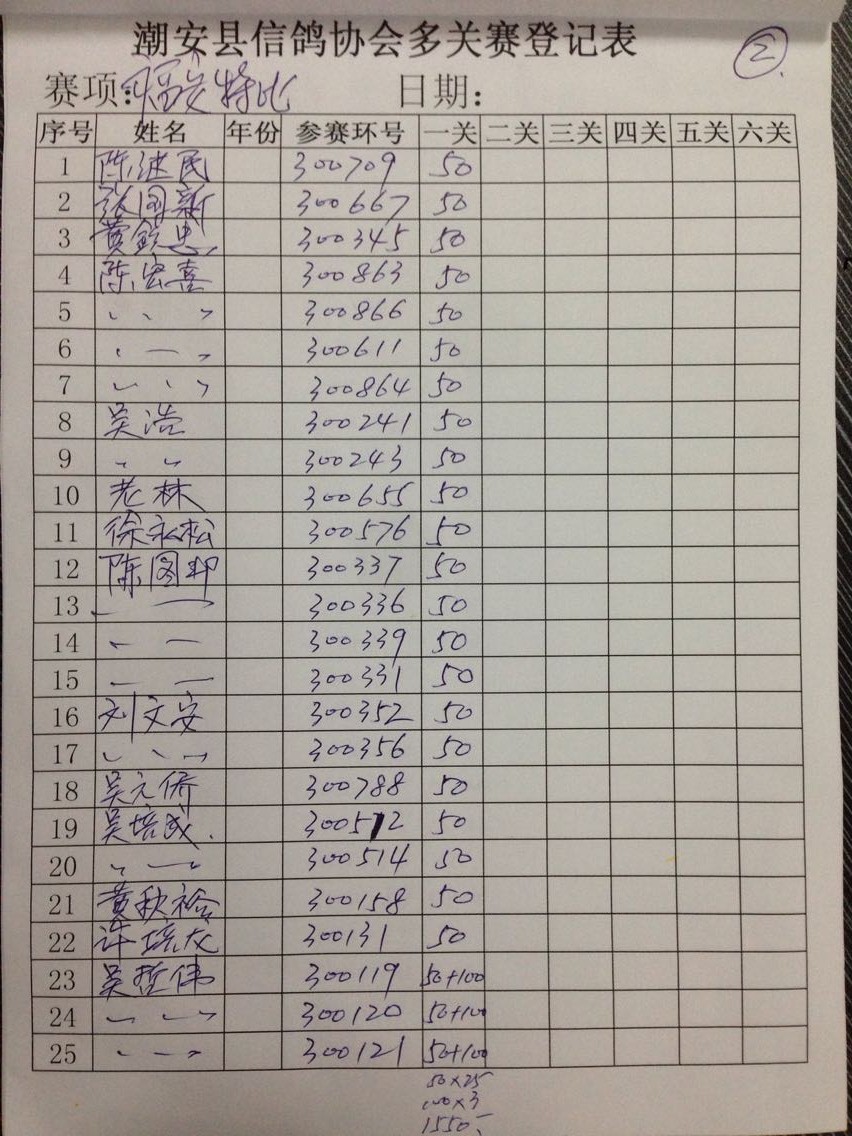 潮安县信鸽协会多关赛登记表
②
赛项:福安特比 日期:
序号 姓名 年份 参赛环号 一关 二关 三关 四关 五关 六关
1 陈继民 300709 50
2 张图新 300667 50
3 黄钦忠 300345 50
4 陈宏喜 300863 50
5 〃 300866 50
6 〃 300611 50
7 〃 300864 50
8 吴浩 300241 50
9 〃 300243 50
10 老林 300655 50
11 徐永松 300576 50
12 陈图邦 300337 50
13 〃 300336 50
14 〃 300339 50
15 〃 300331 50
16 刘文安 300352 50
17 〃 300356 50
18 吴元侨 300788 50
19 吴培成. 300512 50
20 〃 300514 50
21 黄秋裕 300158 50
22 许培龙 300131 50
23 吴哲伟 300119 50+100
24 〃 300120 50+100
25 〃 300121 50+100
50×25
100×3
1550